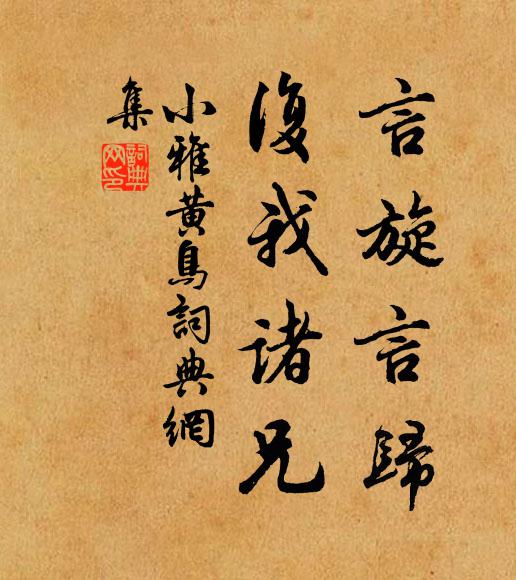 言旋言歸
復我諸兄
小雅黃鳥詞典網
集
詞典
网印